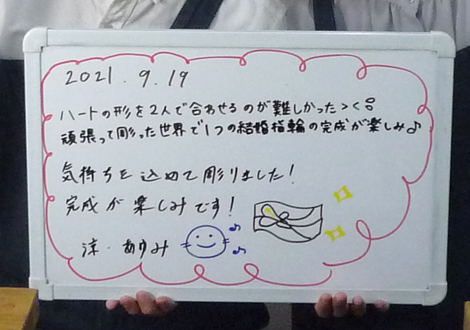 2021.9.19
ハートの形を2人で合わせるのが難しかった><。
頑張って彫った世界で1つの結婚指輪の完成が楽しみ♪
気持ちを込めて彫りました!
完成が楽しみです!
涼・あゆみ